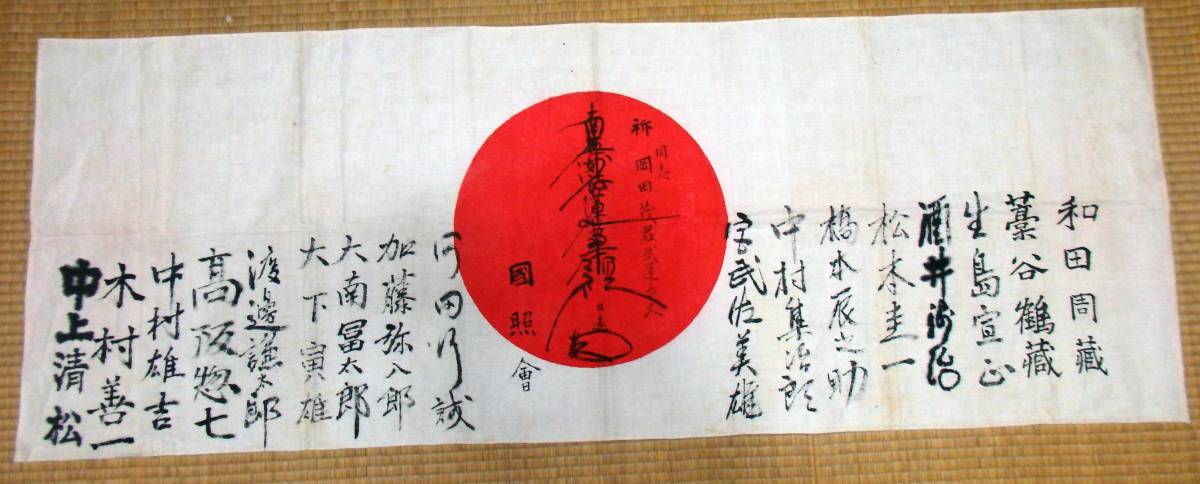 和田周藏
藁谷鶴藏
生島宣正
酒井
松本圭一
橋本辰之助
中村集治郎
宮武佐美雄
祈 同志 岡田茂君武運長久
南無妙法蓮華経
國照會
河田
加藤弥八郎
大南冨太郎
大下寅雄
渡邊謙太郎
高阪惣七
中村雄吉
木村善一
中上清松